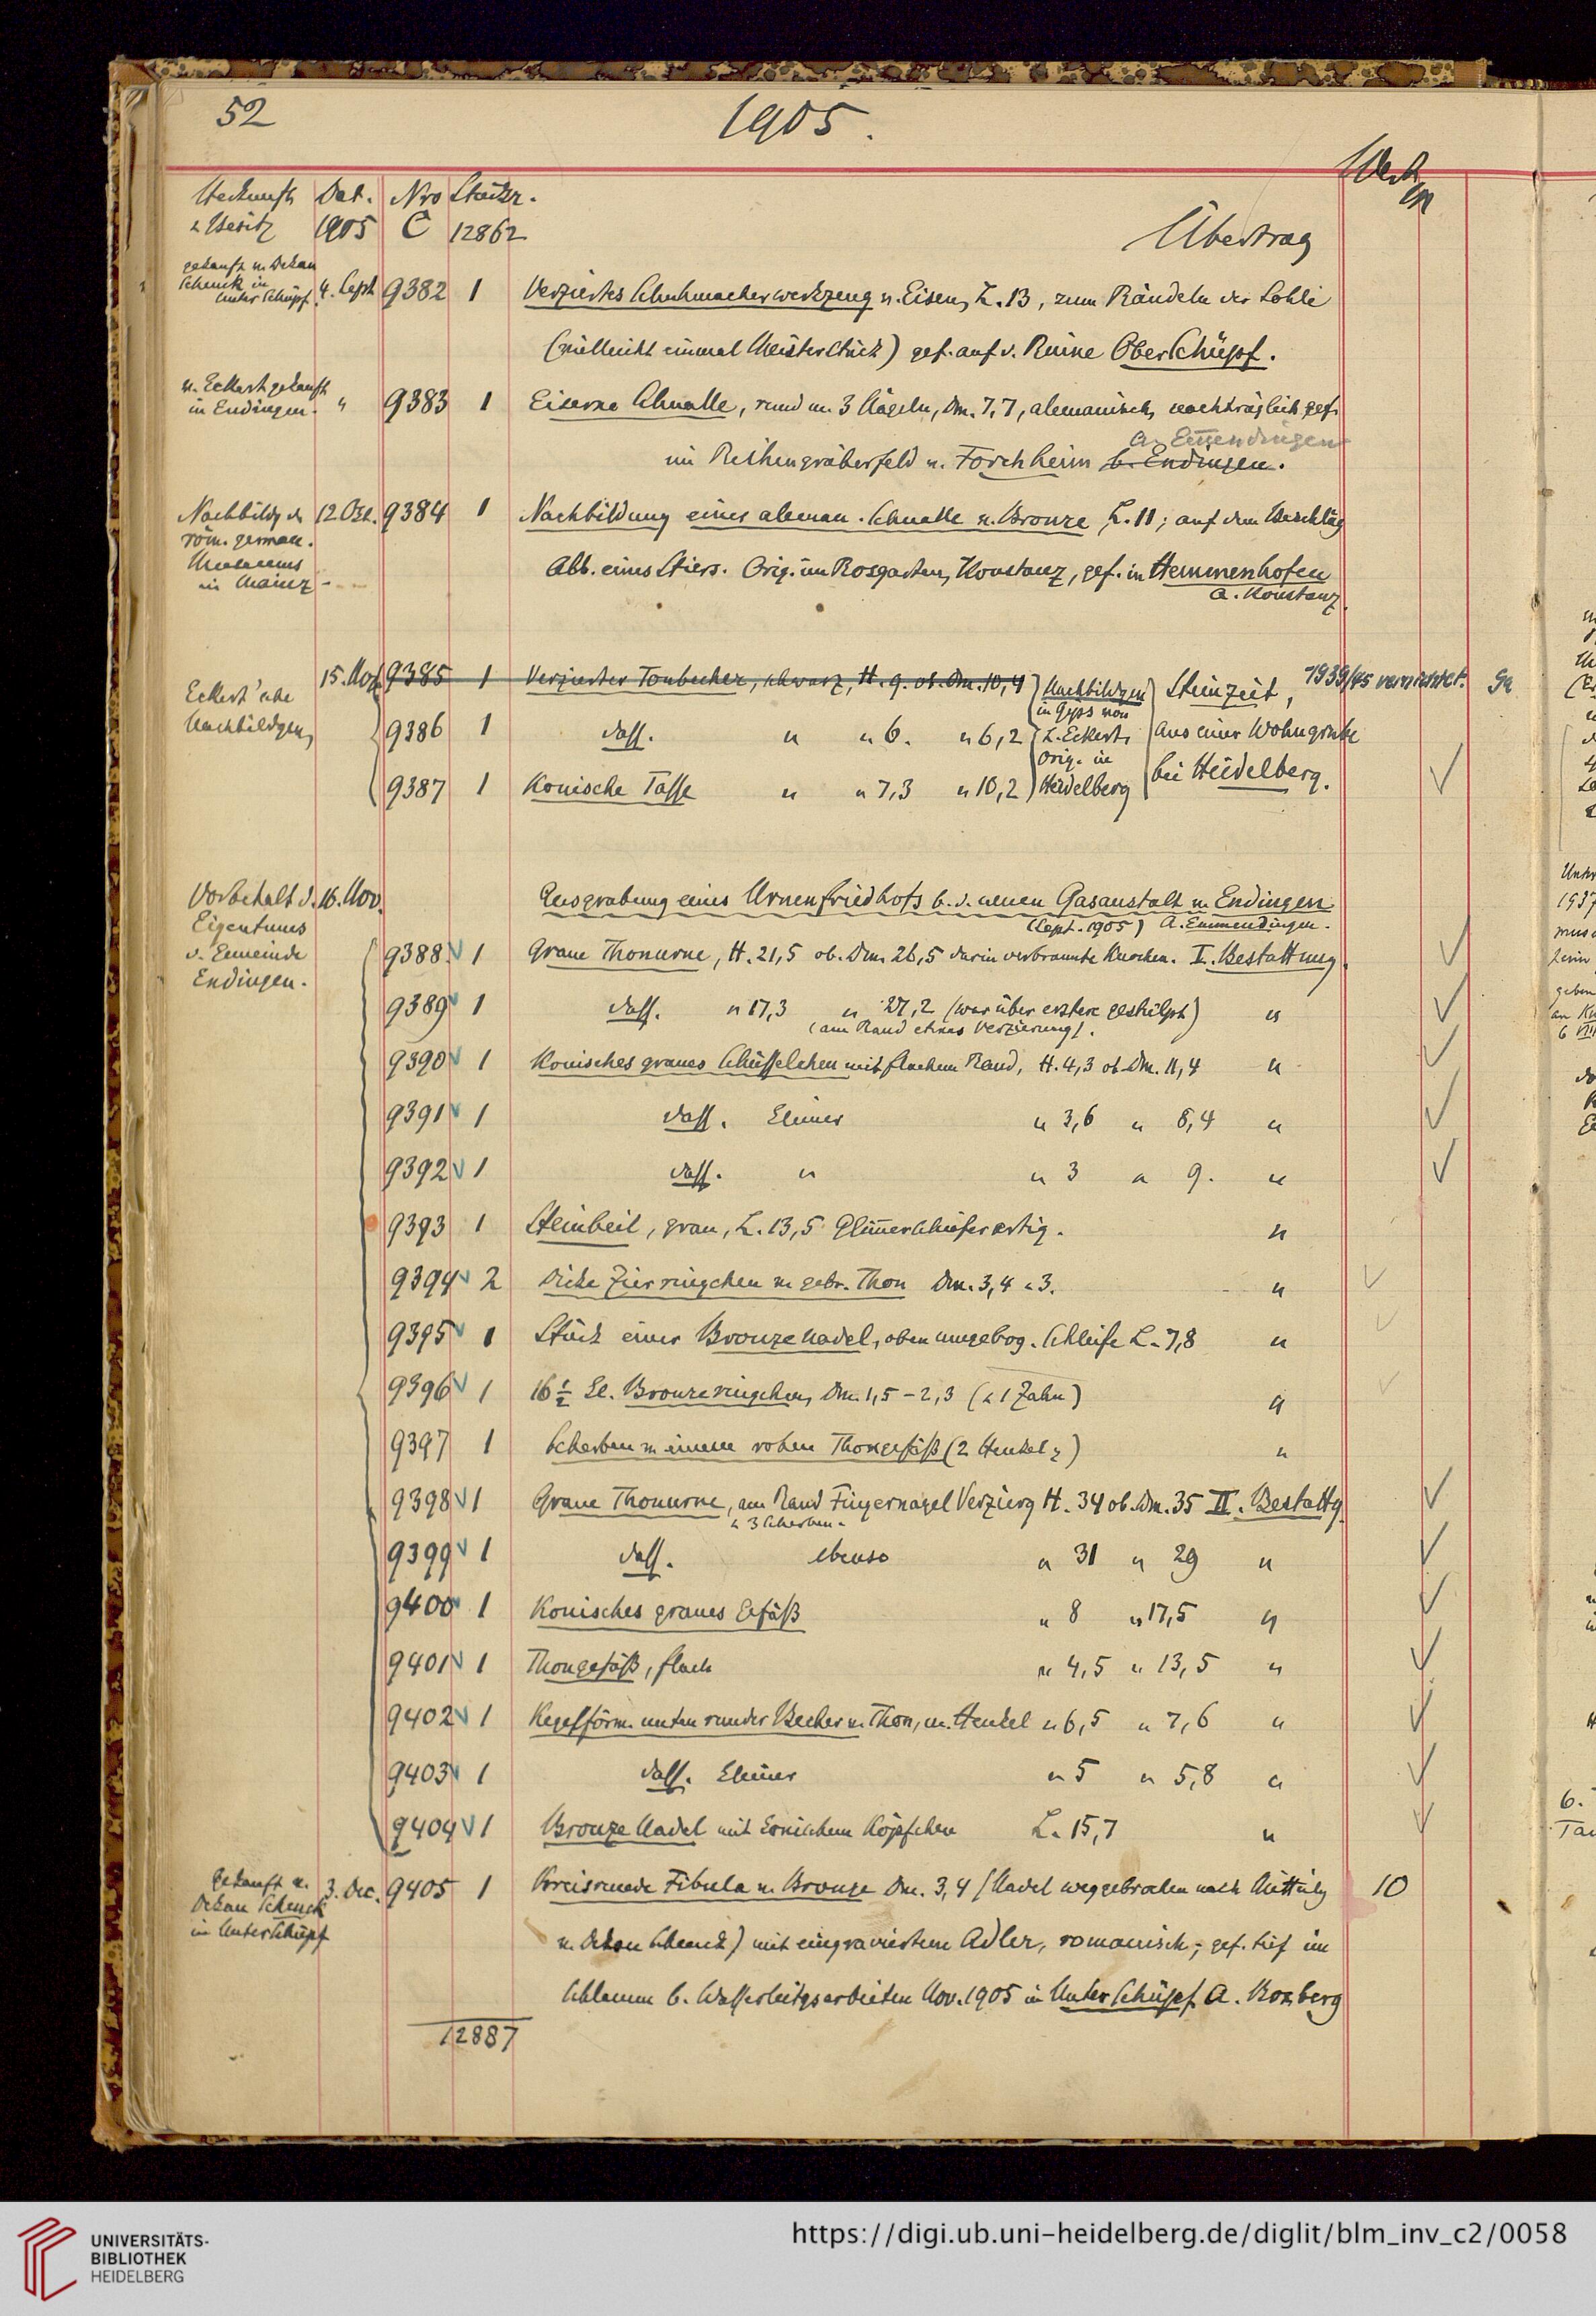 52
1905.
Wert
M
Herkunft Dat. Nro Stückz.
u Besitz 1905 C 12862
Übertrag
gekauft v. Dekan
Schenk in
Unter Schüpf. 4. Sept 9382 1 Verziertes Schuhmacherwerkzeug v. Eisen, L. 13, zum Rändeln der Sohle
(vielleicht einmal Meisterstück) gef. auf d. Ruine OberSchüpf.
v. Eckert gekauft
in Endingen. " 9383 1 Eiserne Schnalle, rund m. 3 Nägeln, Dm. 7,7, alemanisch, nachträglich gef.
A. Em̄endingen
im Reihengräberfeld v. Forchheim b. Endingen.
Nachbildg des 12 Okt. 9384 1 Nachbildung einer aleman. Schnalle v. Bronze L. 11; auf dem Beschläg
röm. german.
Museums
in Mainz -
Abb. eines Stiers. Orig. im Rosgarten, Konstanz, gef. in Hemmenhofen
A. Konstanz.
15. Nov. 9385 1 Verzierter Tonbecher, schwarz, H. 9. ob. Dm. 10,4 Nachbildgen Steinzeit, 1939/45 vernichtet. Ga
Eckert'sche
Nachbildgen
in Gyps von
9386 1 dass. " " 6. " 6,2 L. Eckert, aus einer Wohngrube
Orig. in
9387 1 Konische Tasse " " 7,3 " 10,2 Heidelberg bei Heidelberg.
Vorbehalt d. 16. Nov.
Eigentums
d. Gemeinde
Endingen.
Ausgrabung eines Urnenfriedhofs b. d. neuen Gasanstalt v. Endingen
(Sept. 1905) A. Emmendingen.
9388 1 Graue Thonurne, H. 21,5 ob. Dm. 26,5 darin verbrannte Knochen. I. Bestattung.
9389 1 dass. " 17,3 " 27,2 (war über erstere gestülpt) "
(am Rand etwas Verzierung).
9390 1 Konisches graues Schüsselchen mit flachem Rand, H. 4,3 ob. Dm. 11,4 "
9391 1 dass. kleiner " 3,6 " 8,4 "
9392 1 dass. " " 3 " 9. "
9393 1 Steinbeil, grau, L. 13,5 Glim̄erschieferartig. "
9394 2 Dicke Zierringchen v. gebr. Thon Dm. 3,4 u 3. "
9395 1 Stück einer Bronzenadel, oben umgebog. Schleife L. 7,8 "
9396 1 16 ½ kl. Bronzeringchen, Dm. 1,5 - 2,3 (u 1 Zahn) "
9397 1 Scherben v. einem rohen Thongefäß (2 Henkel) "
9398 1 Graue Thonurne, am Rand Fingernagel Verzierg H. 34 ob. Dm. 35 II. Bestattg.
u 3 Scherben.
9399 1 dass. ebenso " 31 " 29 "
9400 1 Konisches graues Gefäß " 8 " 17,5 "
9401 1 Thongefäß, flach " 4,5 " 13,5 "
9402 1 Kegelförm. unten runder Becher v. Thon, m. Henkel " 6,5 " 7,6 "
9403 1 dass. kleiner " 5 " 5,8 "
9404 1 BronzeNadel mit konischem Köpfchen L. 15,7 "
gekauft v.
Dekan Schenck
in UnterSchüpf
3. Dec. 9405 1 Kreisrunde Fibula v. Bronze Dm. 3,4 (Nadel weggebrochen nach Mitteilg 10
v. Dekan Schenck) mit eingraviertem Adler, romanisch; gef. tief im
Schlamm b. Wasserleitgsarbeiten Nov. 1905 in UnterSchüpf A. Boxberg
12887
UNIVERSITÄTS-
BIBLIOTHEK
HEIDELBERG
https://digi.ub.uni-heidelberg.de/diglit/blm_inv_c2/0058